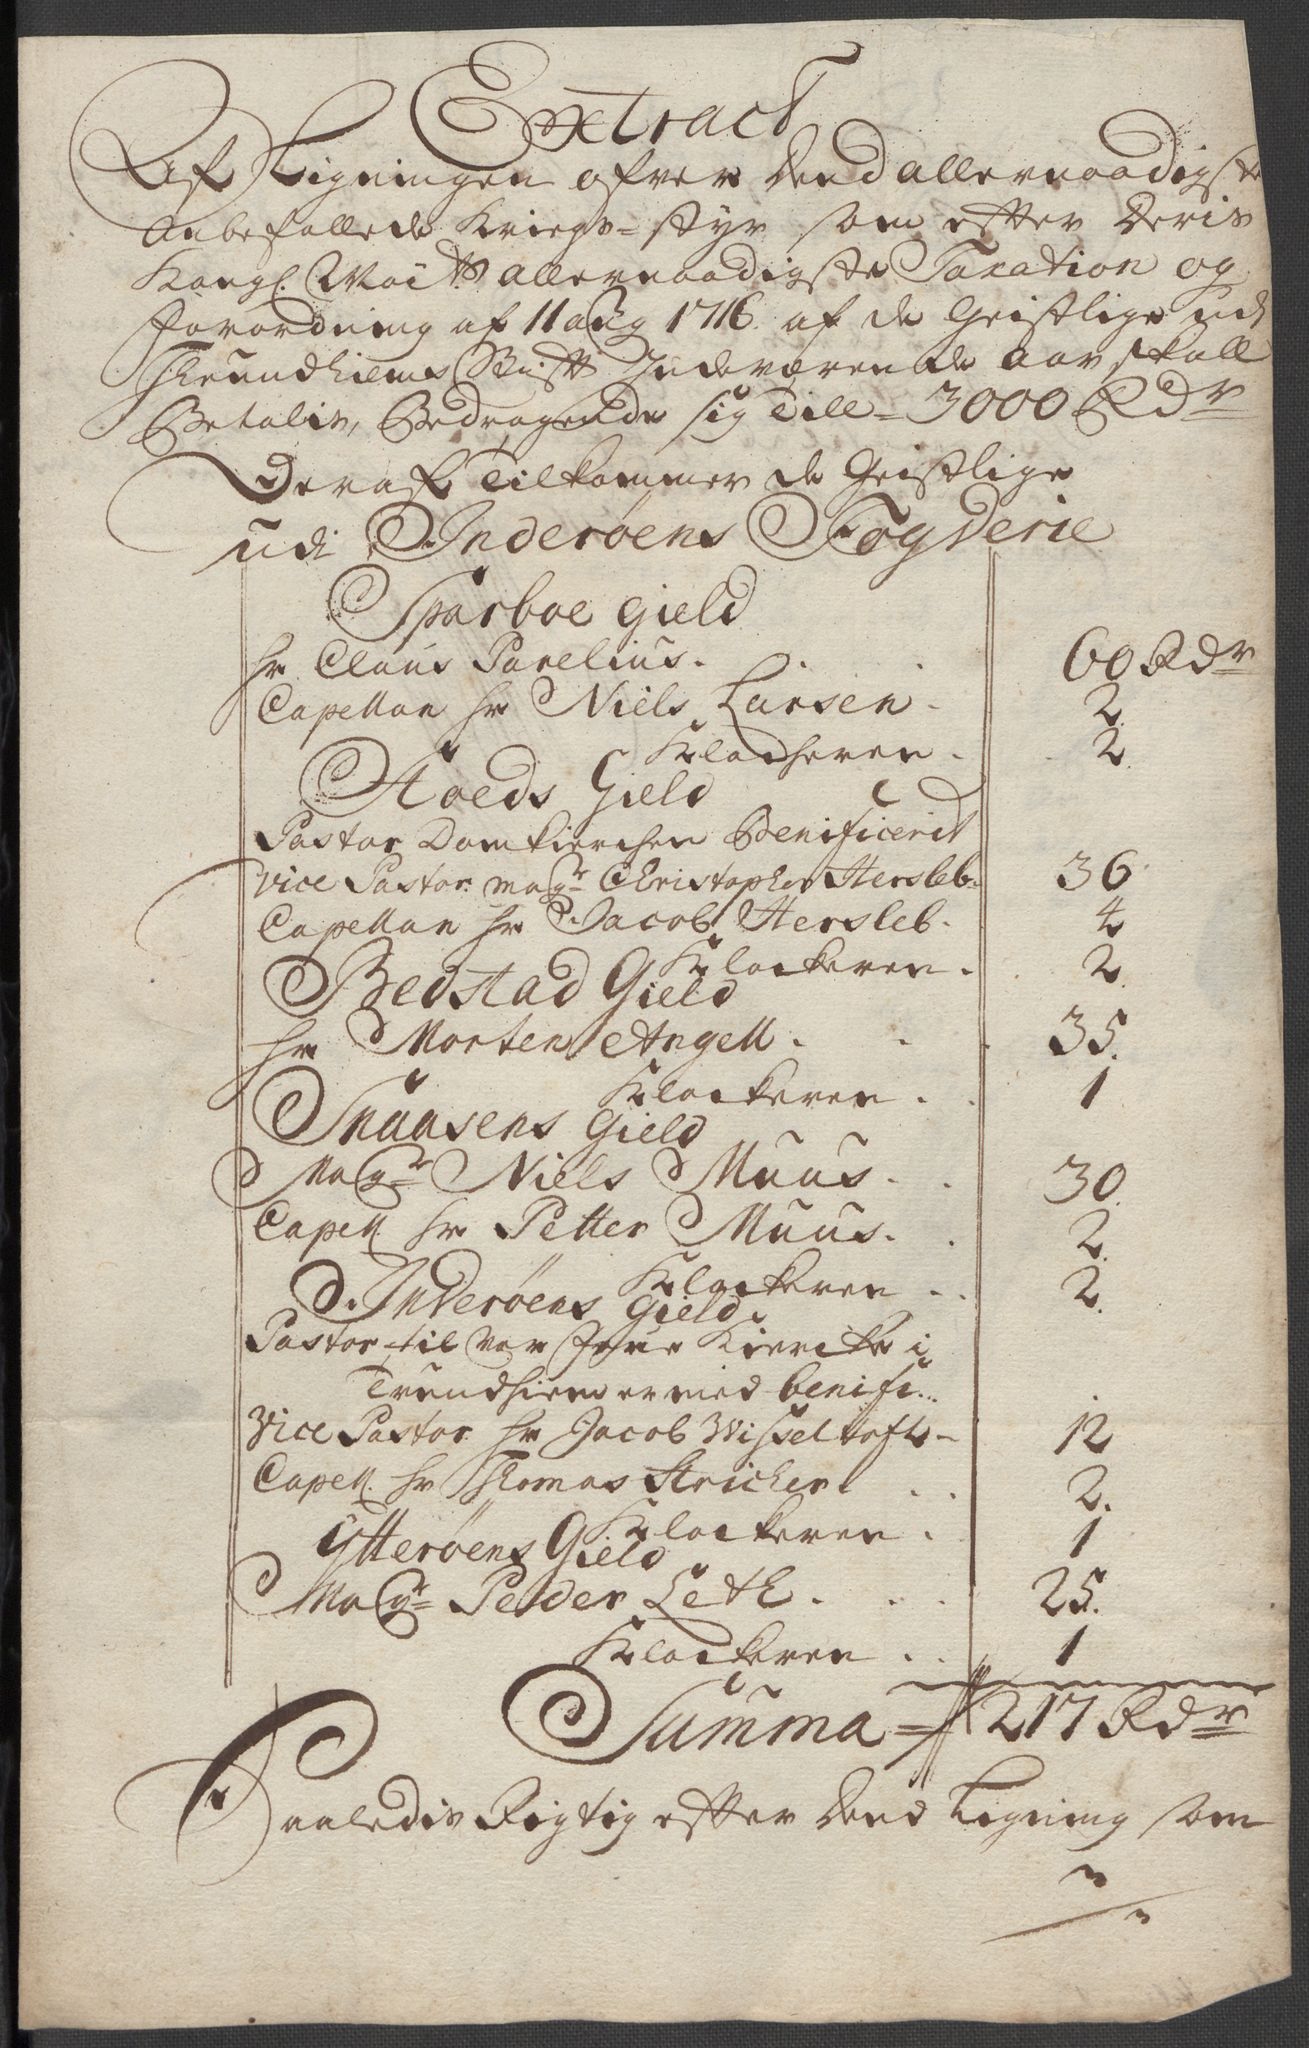 Extract
Af Ligningen ofver dend allernaadigste
Anbefallede Kriegs-Styr som efter Deris
Kongl. Mai:ts allernaadigste Taxation og
Forordning af 11 aug 1716 af de Geistlige udj
Thrundhiems Stift Indeværende Aar skall
Betalis, Bedragende sig Till - 3000 Rdr
Deraf Tilkommer de Geistlige
udi Inderøens Fogderie
Sparboe gield
Hr Claus Parelius. 60 Rdr
Capellan hr Niels Larsen. 2.
Klocheren. 2.
Stoeds Gield
Pastor Domkierchen Benificerit
Vice Pastor magr Christopher Hersleb. 36
Capellan hr Jacob Hersleb. 4
Klockeren. 2.
Bedstad Gield
Hr Morten Angell. 35.
Klockeren. 1
Snaasens Gield
Magr Niels Muus. 30.
Capell. hr Petter Muus. 2.
Klockeren 2.
Inderøens Gield.
Pastor til vor Frue Kiercke i
Trundhiem er med benifi..
Vice Pastor hr Jacob Wisseltofte 12
Capell. hr Thomas Stricker 2.
Klockeren. 1
Ytterøens Gield
Magr Peder Leth. 25.
Klockeren. 1
Summa = 217 Rdr
Saaledis Rigtig efter dend Ligning som